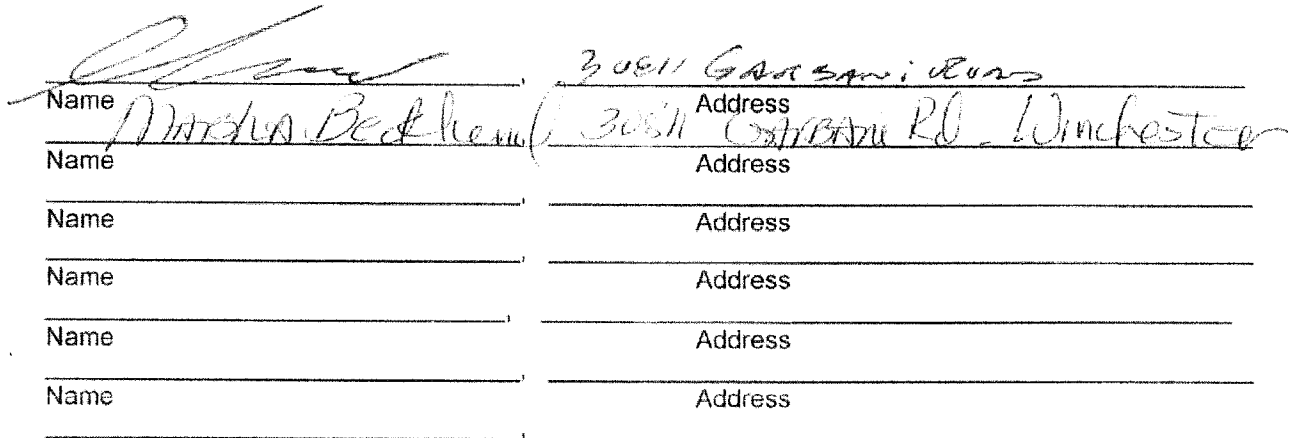 , 30511
Name Address
Marsha 30511 Garbani Rd. Winchester
Name Address
, 
Name Address
, 
Name Address
, 
Name Address
, 
Name Address
,